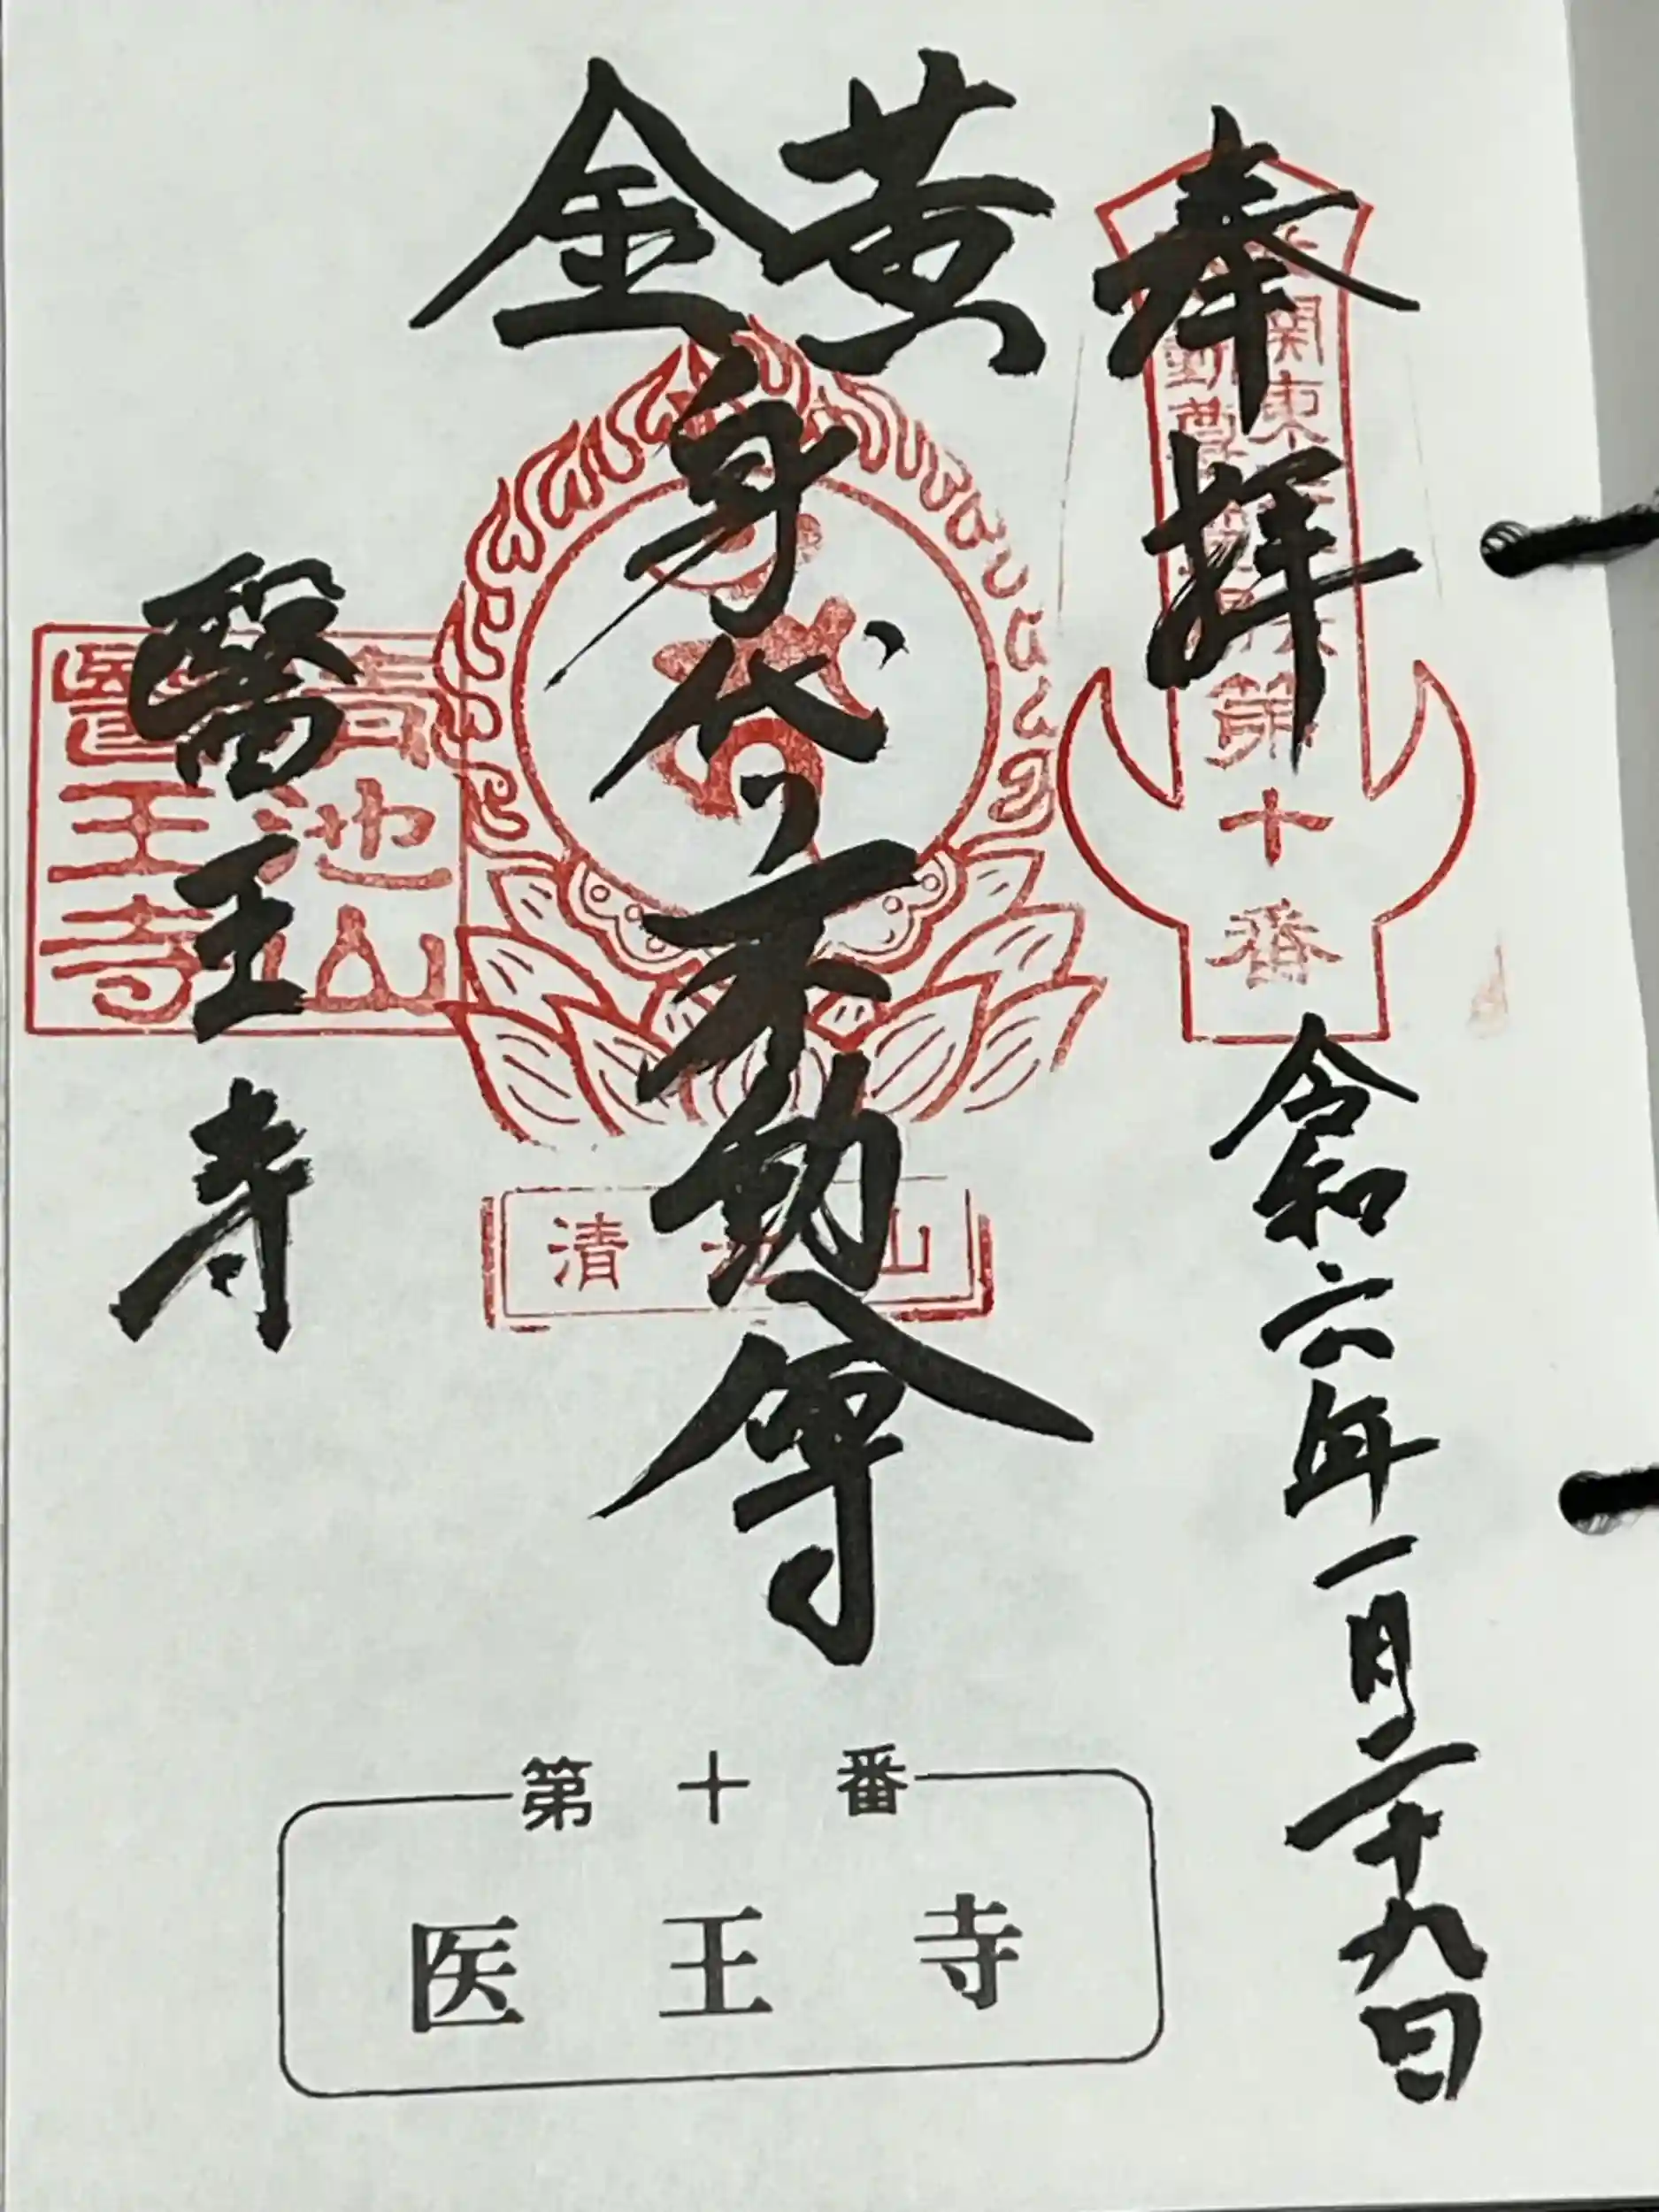 奉拝
令和六年一月二十九日
関東
動尊
第十番
黄金
身代り不動尊
清 山
醫王寺
池山
醫王寺
第十番
医王寺